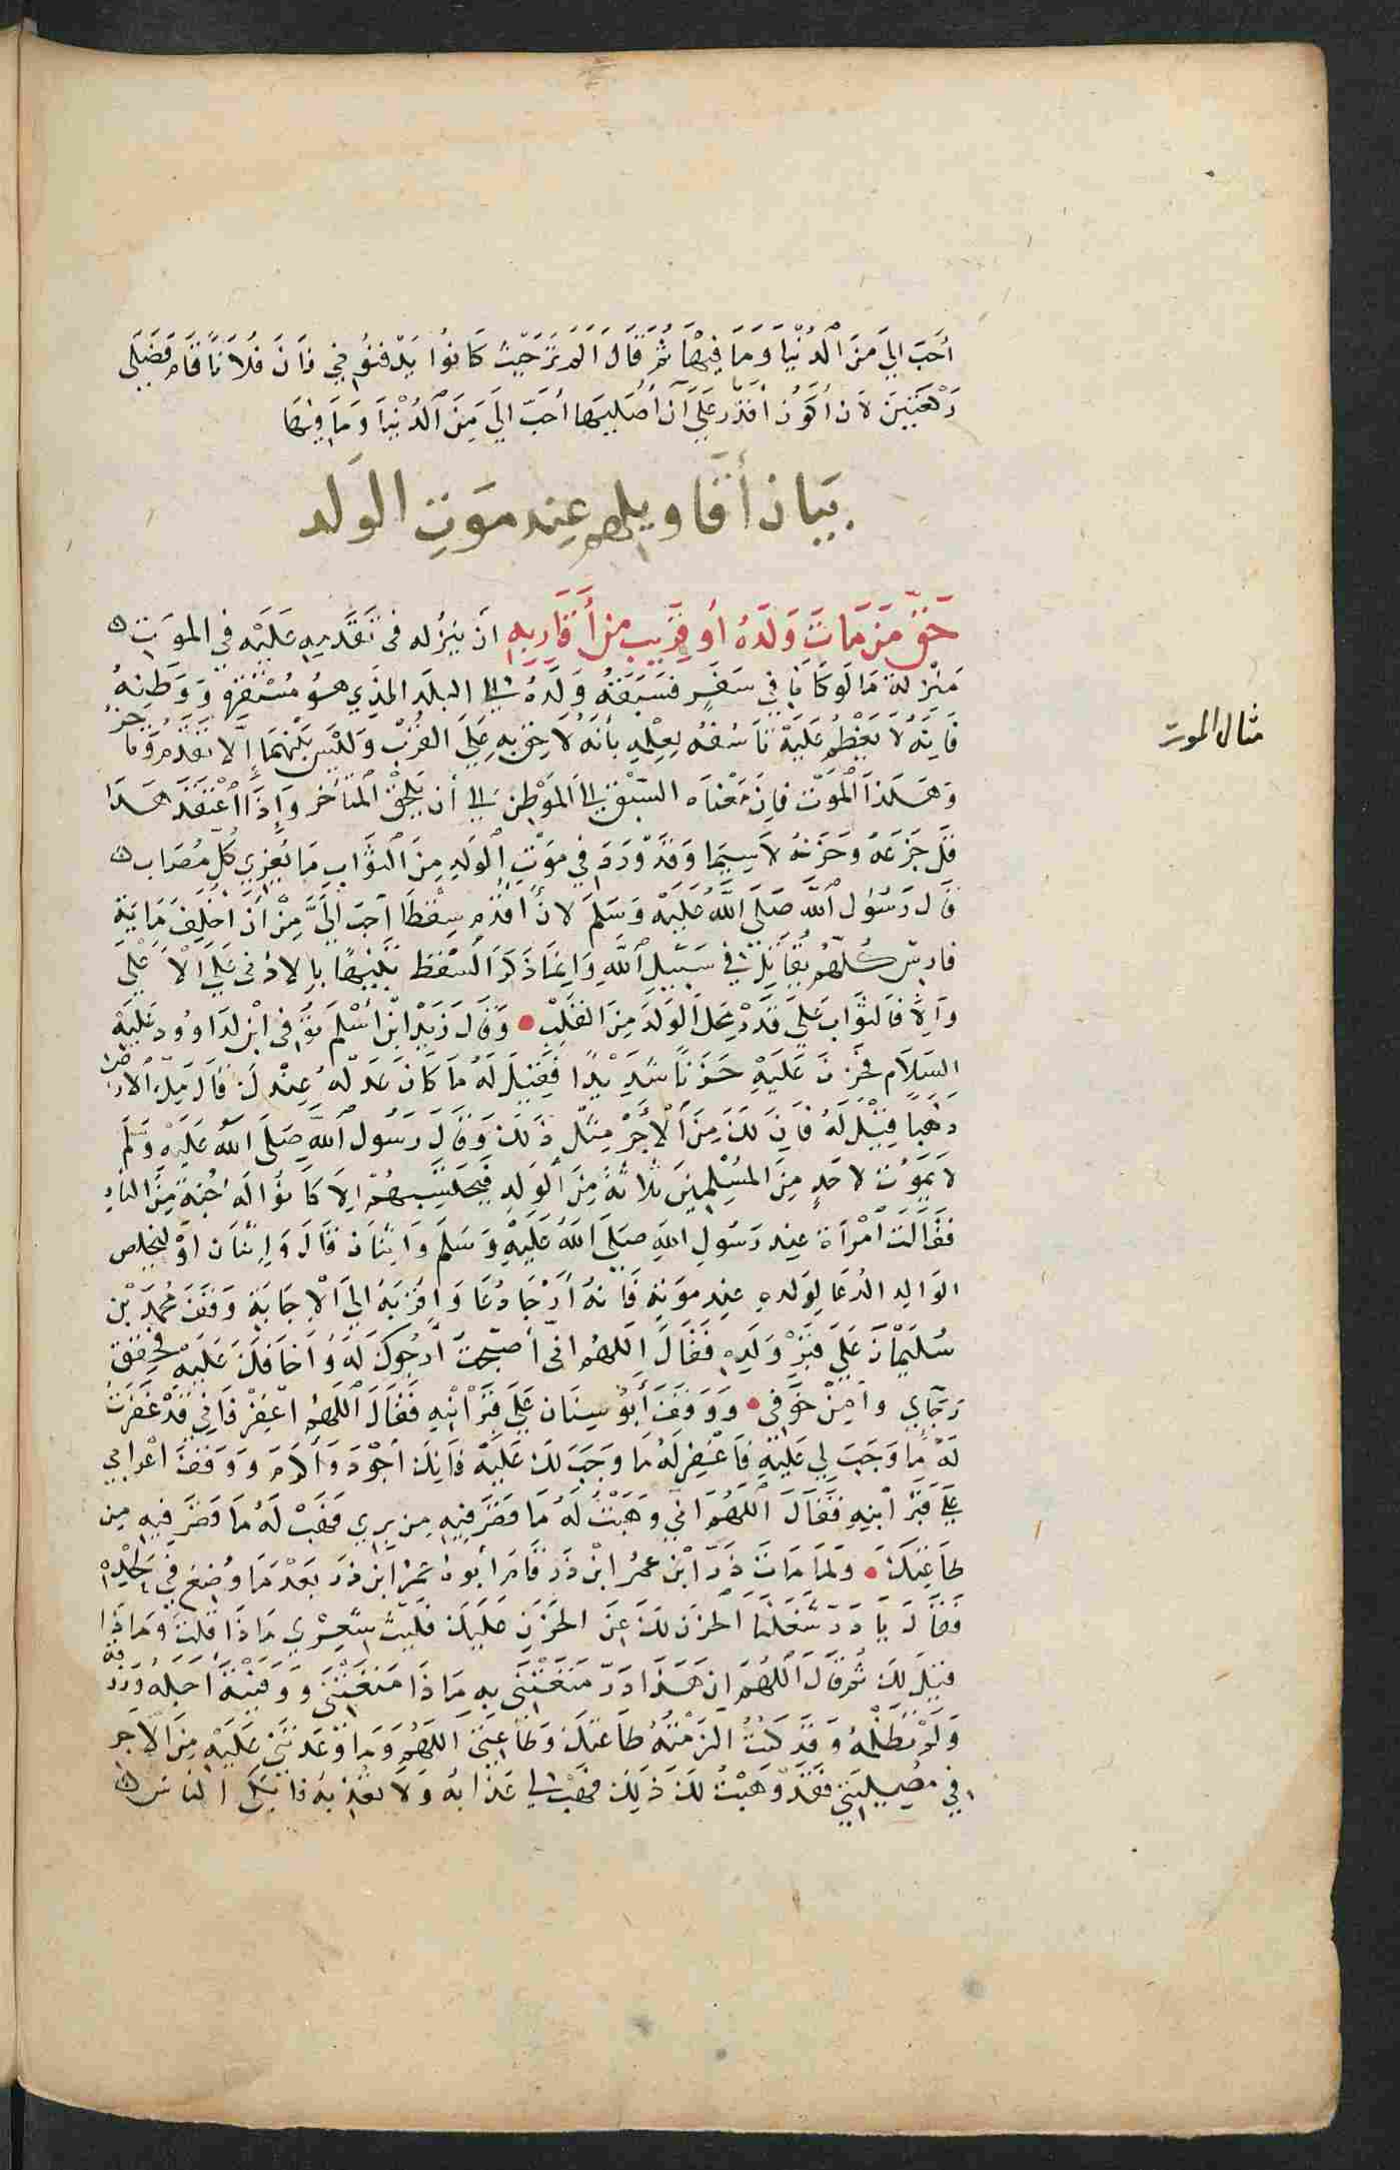 أحب الي من الدنيا وما فيها ثم قال الم تر حيث كانوا يدفنو في فان فلانا قام فصلى
ركعتين لان أكون أقدر علي آن أصليهما أحب الي من الدنيا وما فيها
بيان أقاويلهم عند موت الولد
حق من مات ولده أو قريب من أقاربه ان ينزله في تقدمه عليه في الموت
منزلة ما لو كانا في سفر فسبقه ولده الي البلد الذي هو مستقره ووطنه
فإنه لا يعظم عليه تأسفه بعلمه بأنه لاحق به علي القرب وليس بينهما إلا تقدم وتأخر
وهكذا الموت فان معناه السبق الي الموطن الي أن يلحق المتأخر وإذا اعتقد هذا
قل جزعه وحزنه لا سيما وقد ورد في موت الولد من الثواب ما يعزي كل مصاب
قال رسول الله صلى الله عليه وسلم لان أقدم سقطا آحب الي من أن أخلف مائة
فارس كلهم يقاتل في سبيل الله وانما ذكر السقط تنبيها بالادنى علي الاعلي
والا فالثواب علي قدر محل الولد من القلب وقال زيد ابن أسلم توفى ابن لداوود عليه
السلام فحزن عليه حزنا شديدا فقيل له ما كان عدله عندك قال ملء الارض
ذهبا قيل له فان لك من الأجر مثل ذلك وقال رسول الله صلى الله عليه وسلم
لا يموت لاحد من المسلمين ثلاثة من الولد فيحتسبهم الا كانوا له جنة من النار
فقالت امرأة عند رسول الله صلى الله عليه وسلم واثنان قال واثنان وليخلص
الوالد الدعا لولده عند موته فانه أرجا دعا وأقربه الي الاجابة وقف محمد بن
سليمان علي قبر ولده فقال اللهم اني أصبحت أرجوك له وأخافك عليه فحقق
رجاي وآمن خوفي ووقف أبو سنان علي قبر ابنه فقال اللهم اغفر فاني قد غفرت
له ما وجب لي عليه فاغفر له ما وجب لك عليه فانك أجود وأكرم ووقف اعرابي
علي قبر ابنه فقال اللهم اني وهبت له ما قصر فيه من بري فهب له ما قصر فيه من
طاعتك ولما مات ذر ابن عمر ابن ذر قام أبوه عمر ابن ذر بعد ما وضع في لحده
فقال يا ذر شغلنا الحزن لك عن الحزن عليك فليت شعري ماذا قلت وماذا
قيل لك ثم قال اللهم ان هذا ذر متعتني به ماذا متعتني ووفيته أجله ورزقه
ولم تظلمه وقد كنت الزمته طاعتك وطاعتي اللهم وما وعدتني عليه من الأجر
في مصيبتي فقد وهبت له ذلك فهب لي عذابه ولا تعذبه فابكى الناس
مثال الموت